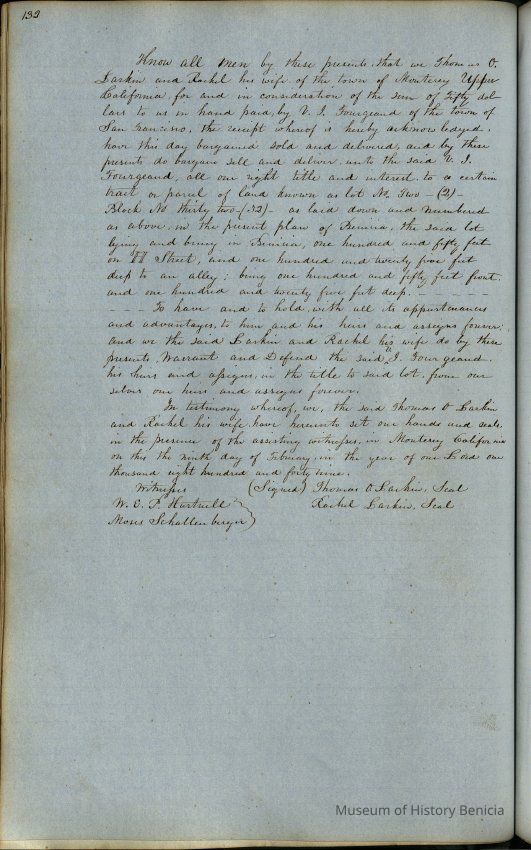 132
Know all men by these presents, that we Thomas O.
Larkin and Rachel his wife of the town of Monterey Upper
California, for and in consideration of the sum of fifty dol
lars to us in hand paid, by V. J. Fourgeaud of the town of
San Francisco, the receipt whereof is hereby acknowledged,
have this day bargained sold and delivered, and by these
presents do bargain sell and deliver, unto the said V. J.
Fourgeaud, all our right title and interest to a certain
tract or parcel of land known as lot No. Two - (2) -
Block No thirty two - (32) - as laid down and numbered
as above, in the present plan of Benicia, the said lot
lying and being in Benicia, one hundred and fifty feet
on Street, and one hundred and twenty five feet
deep to an alley; being one hundred and fifty feet front,
and one hundred and twenty five feet deep. - - - - -
- - - To have and to hold, with all its appurtenances
and advantages, to him and his heirs and assigns forever,
and we the said Larkin and Rachel his wife do by these
presents, Warrant and Defend the said V. J. Fourgeaud.
his heirs and assigns, in the title to said lot, from our
selves our heirs and assigns forever.
In testimony whereof, we, the said Thomas O Larkin
and Rachel his wife, have hereunto set our hands and seals,
in the presence of the assisting witnesses, in Monterey California
on this the ninth day of February, in the year of our Lord one
thousand eight hundred and forty nine.
Witnesses (Signed) Thomas O Larkin, Seal
W. E. P. Hartnell Rachel Larkin, Seal
Moses Schallenberger
Museum of History Benicia